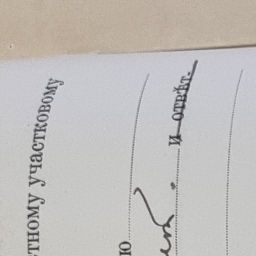 тному участковому
ю
И отвѣт.